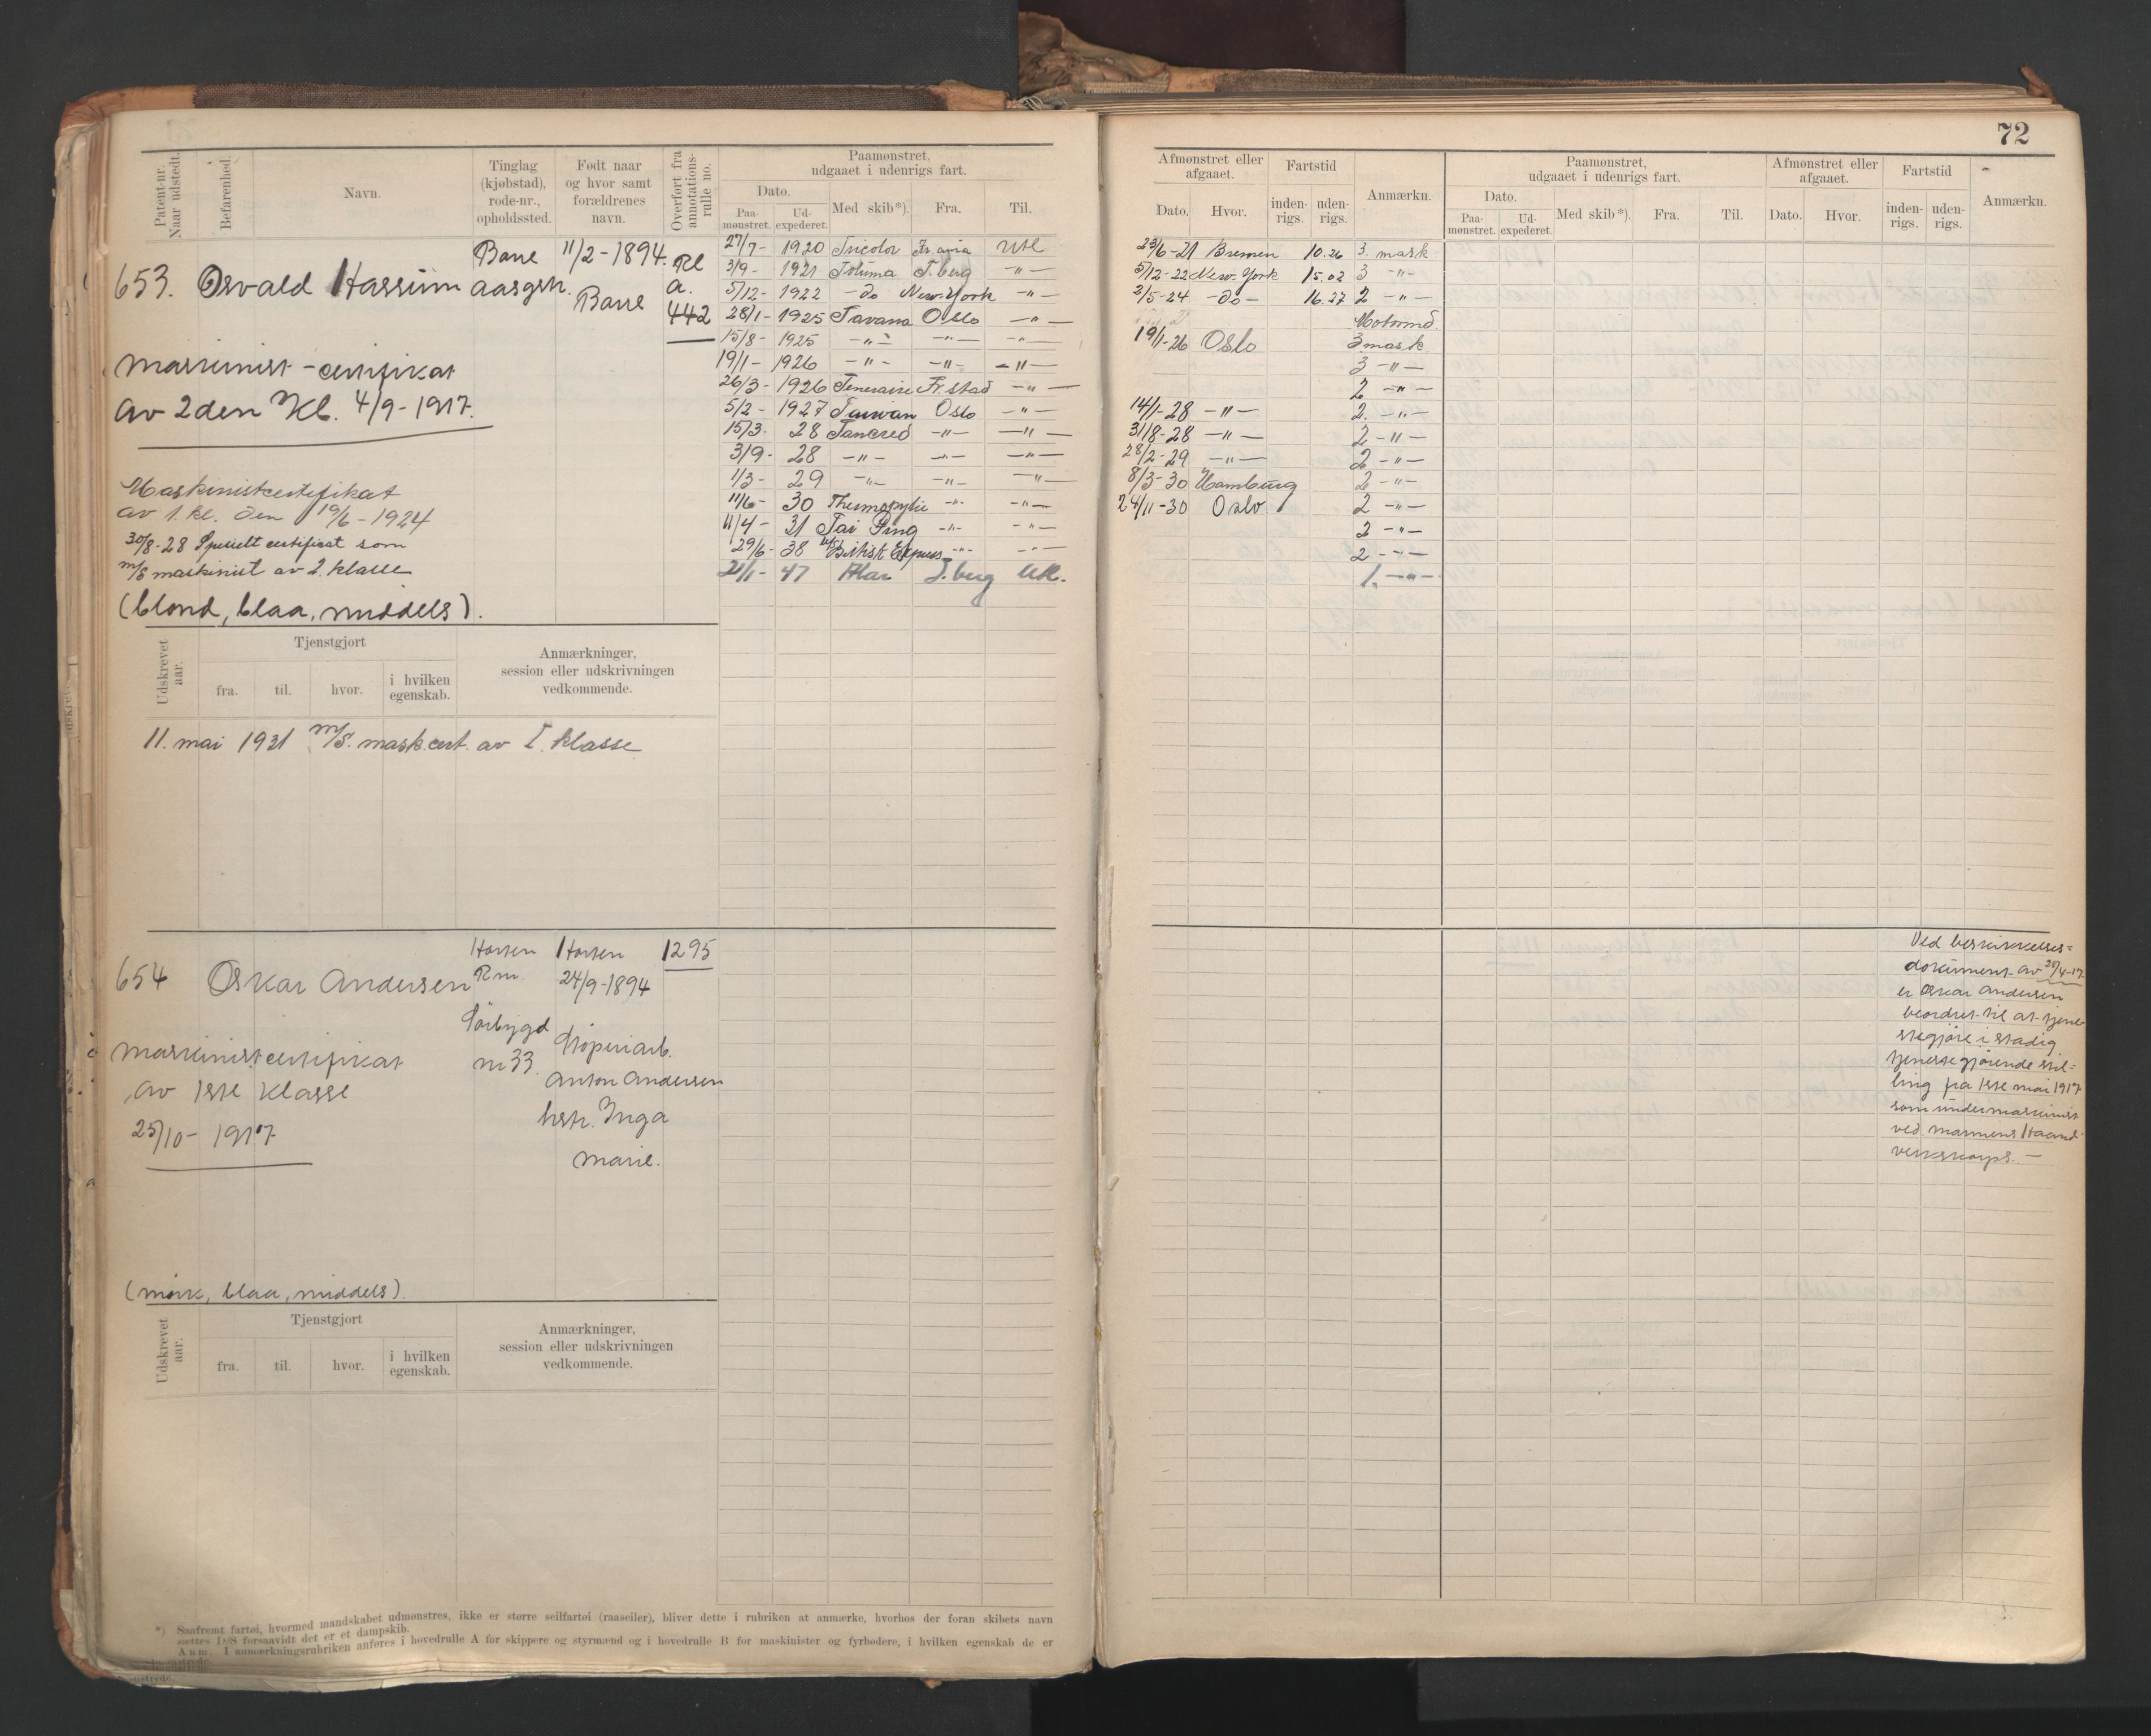 72
Patent-nr. Naar udstedt.
Befarenhed.
Navn.
Tinglag (kjøbstad), rode-nr., opholdssted.
Født naar og hvor samt forældrenes navn.
Overført fra annotations-rulle no.
Paamønstret, udgaaet i udenrigs fart.
Dato.
Paa-mønstret.
Ud-expederet.
Med skib*).
Fra.
Til.
653. Osvald Hassum
Borre
aasgstr.
11/2-1894.
Borre
Rl
a.
442
maskinist-certifikat
av 2den Kl. 4/9-1917.
Maskinistcertifikat
av 1. kl. den 19/6-1924
30/8-28 Specielt certificat som
m/S maskinist av 2. klasse
(blond, blaa, middels).
27/7- 1920 Tricolor Utl
3/9- 1921 Totuma T.berg -"-
5/12- 1922 -do New York -"-
28/1- 1925 Tavana Oslo -"-
15/8- 1925 -"- -"- -"-
19/1- 1926 -"- -"- -"-
26/3- 1926 Temeraire Fr.stad -"-
5/2- 1927 Taiwan Oslo -"-
15/3- 28 Tancred -"- -"-
3/9- 28 -"- -"- -"-
1/3- 29 -"- -"- -"-
11/6- 30 Thermopylæ -"- -"-
11/4- 31 Tai Ping -"- -"-
29/6- 38 British Express -"- -"-
21/1- 47 T.berg Utl.
Udskrevet aar.
Tjenstgjort
fra.
til.
hvor.
i hvilken egenskab.
Anmærkninger,
session eller udskrivningen
vedkommende.
11. mai 1931 m/S. mask.cert. av I. klasse
654 Oskar Andersen
Horten
Rm.
Sørbygd
nr 33.
Horten
24/9-1894
Støperiarb.
Anton Andersen
hstr. Inga
Marie.
1295
Maskinistcertifikat
av 1ste klasse
25/10-1917
(mørk, blaa, middels).
Udskrevet aar.
Tjenstgjort
fra.
til.
hvor.
i hvilken egenskab.
Anmærkninger,
session eller udskrivningen
vedkommende.
*) Saafremt fartøi, hvormed mandskabet udmønstres, ikke er større seilfartøi (raaseiler), bliver dette i rubriken at anmærke, hvorhos der foran skibets navn
sættes D/S forsaavidt det er et dampskib.
Anm. I anmærkningsrubriken anføres i hovedrulle A for skippere og styrmænd og i hovedrulle B for maskinister og fyrbødere, i hvilken egenskab de er
Afmønstret eller afgaaet.
Dato.
Hvor.
Fartstid
inden-rigs.
uden-rigs.
Anmærkn.
Paamønstret, udgaaet i udenrigs fart.
Dato.
Paa-mønstret.
Ud-expederet.
Med skib*).
Fra.
Til.
Afmønstret eller afgaaet.
Dato.
Hvor.
Fartstid
inden-rigs.
uden-rigs.
Anmærkn.
23/6-21 Bremen 10.26 3. mask
5/12-22 New York 15.02 3 -"-
2/5-24 -do- 16.27 2 -"-
Motormd.
19/1-26 Oslo 3 mask
3 -"-
2 -"-
14/1-28 -"- 2. -"-
31/8-28 -"- 2 -"-
28/2-29 -"- 2 -"-
8/3-30 Hamburg 2 -"-
24/11-30 Oslo 2 -"-
2 -"-
2 -"-
1. -"-
Ved beskikkelses=
dokument av 25/4-17
er Oskar Andersen
beordret til at tjene-
stegjøre i stadig
tjenestegjørende stil=
ling fra 1ste mai 1917
som undermaskinist
ved marinens Haand-
verkskorps.-